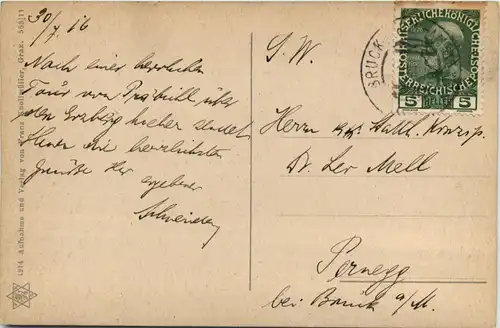 30/7 16
Nach einer herrlichen
Tour von Präbichl über
den Erzbg hieher sendet
Ihnen die herzlichsten
Grüße Ihr
ergebener
S. W.
Herrn k.k. Statth. Konzip.
Dr. Leo Mell
Pernegg
bei Bruck a/M.
BRUCK
KAISERLICHE KÖNIGLICHE
ÖSTERREICHISCHE
5 HELLER 5
1914 Aufnahme und Verlag von Franz Knollmüller, Graz. 565/11